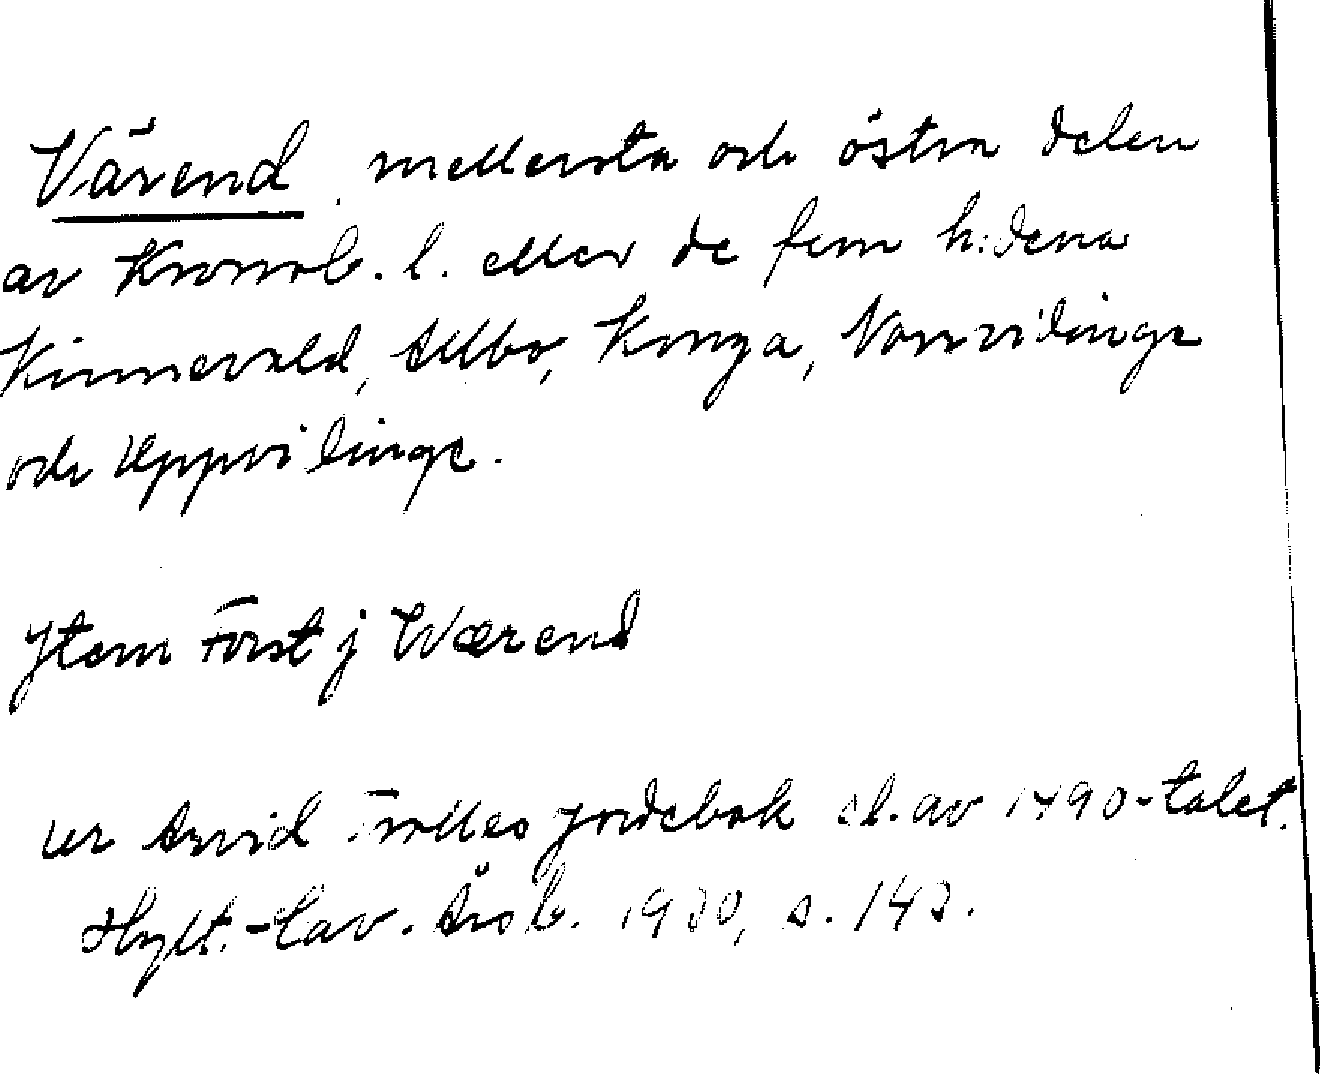 Värend, mellersta och östra delen
av Kronob. l. eller de fem h:dena
Kinnevald, Allbo, Konga, Norrvidinge
och Uppvidinge.
Jtem Först j Wærend
ur Arvid Trolles jordebok sl. av 1490-talet.
Hylt.-Cav. Årsb. 1930, s. 143.